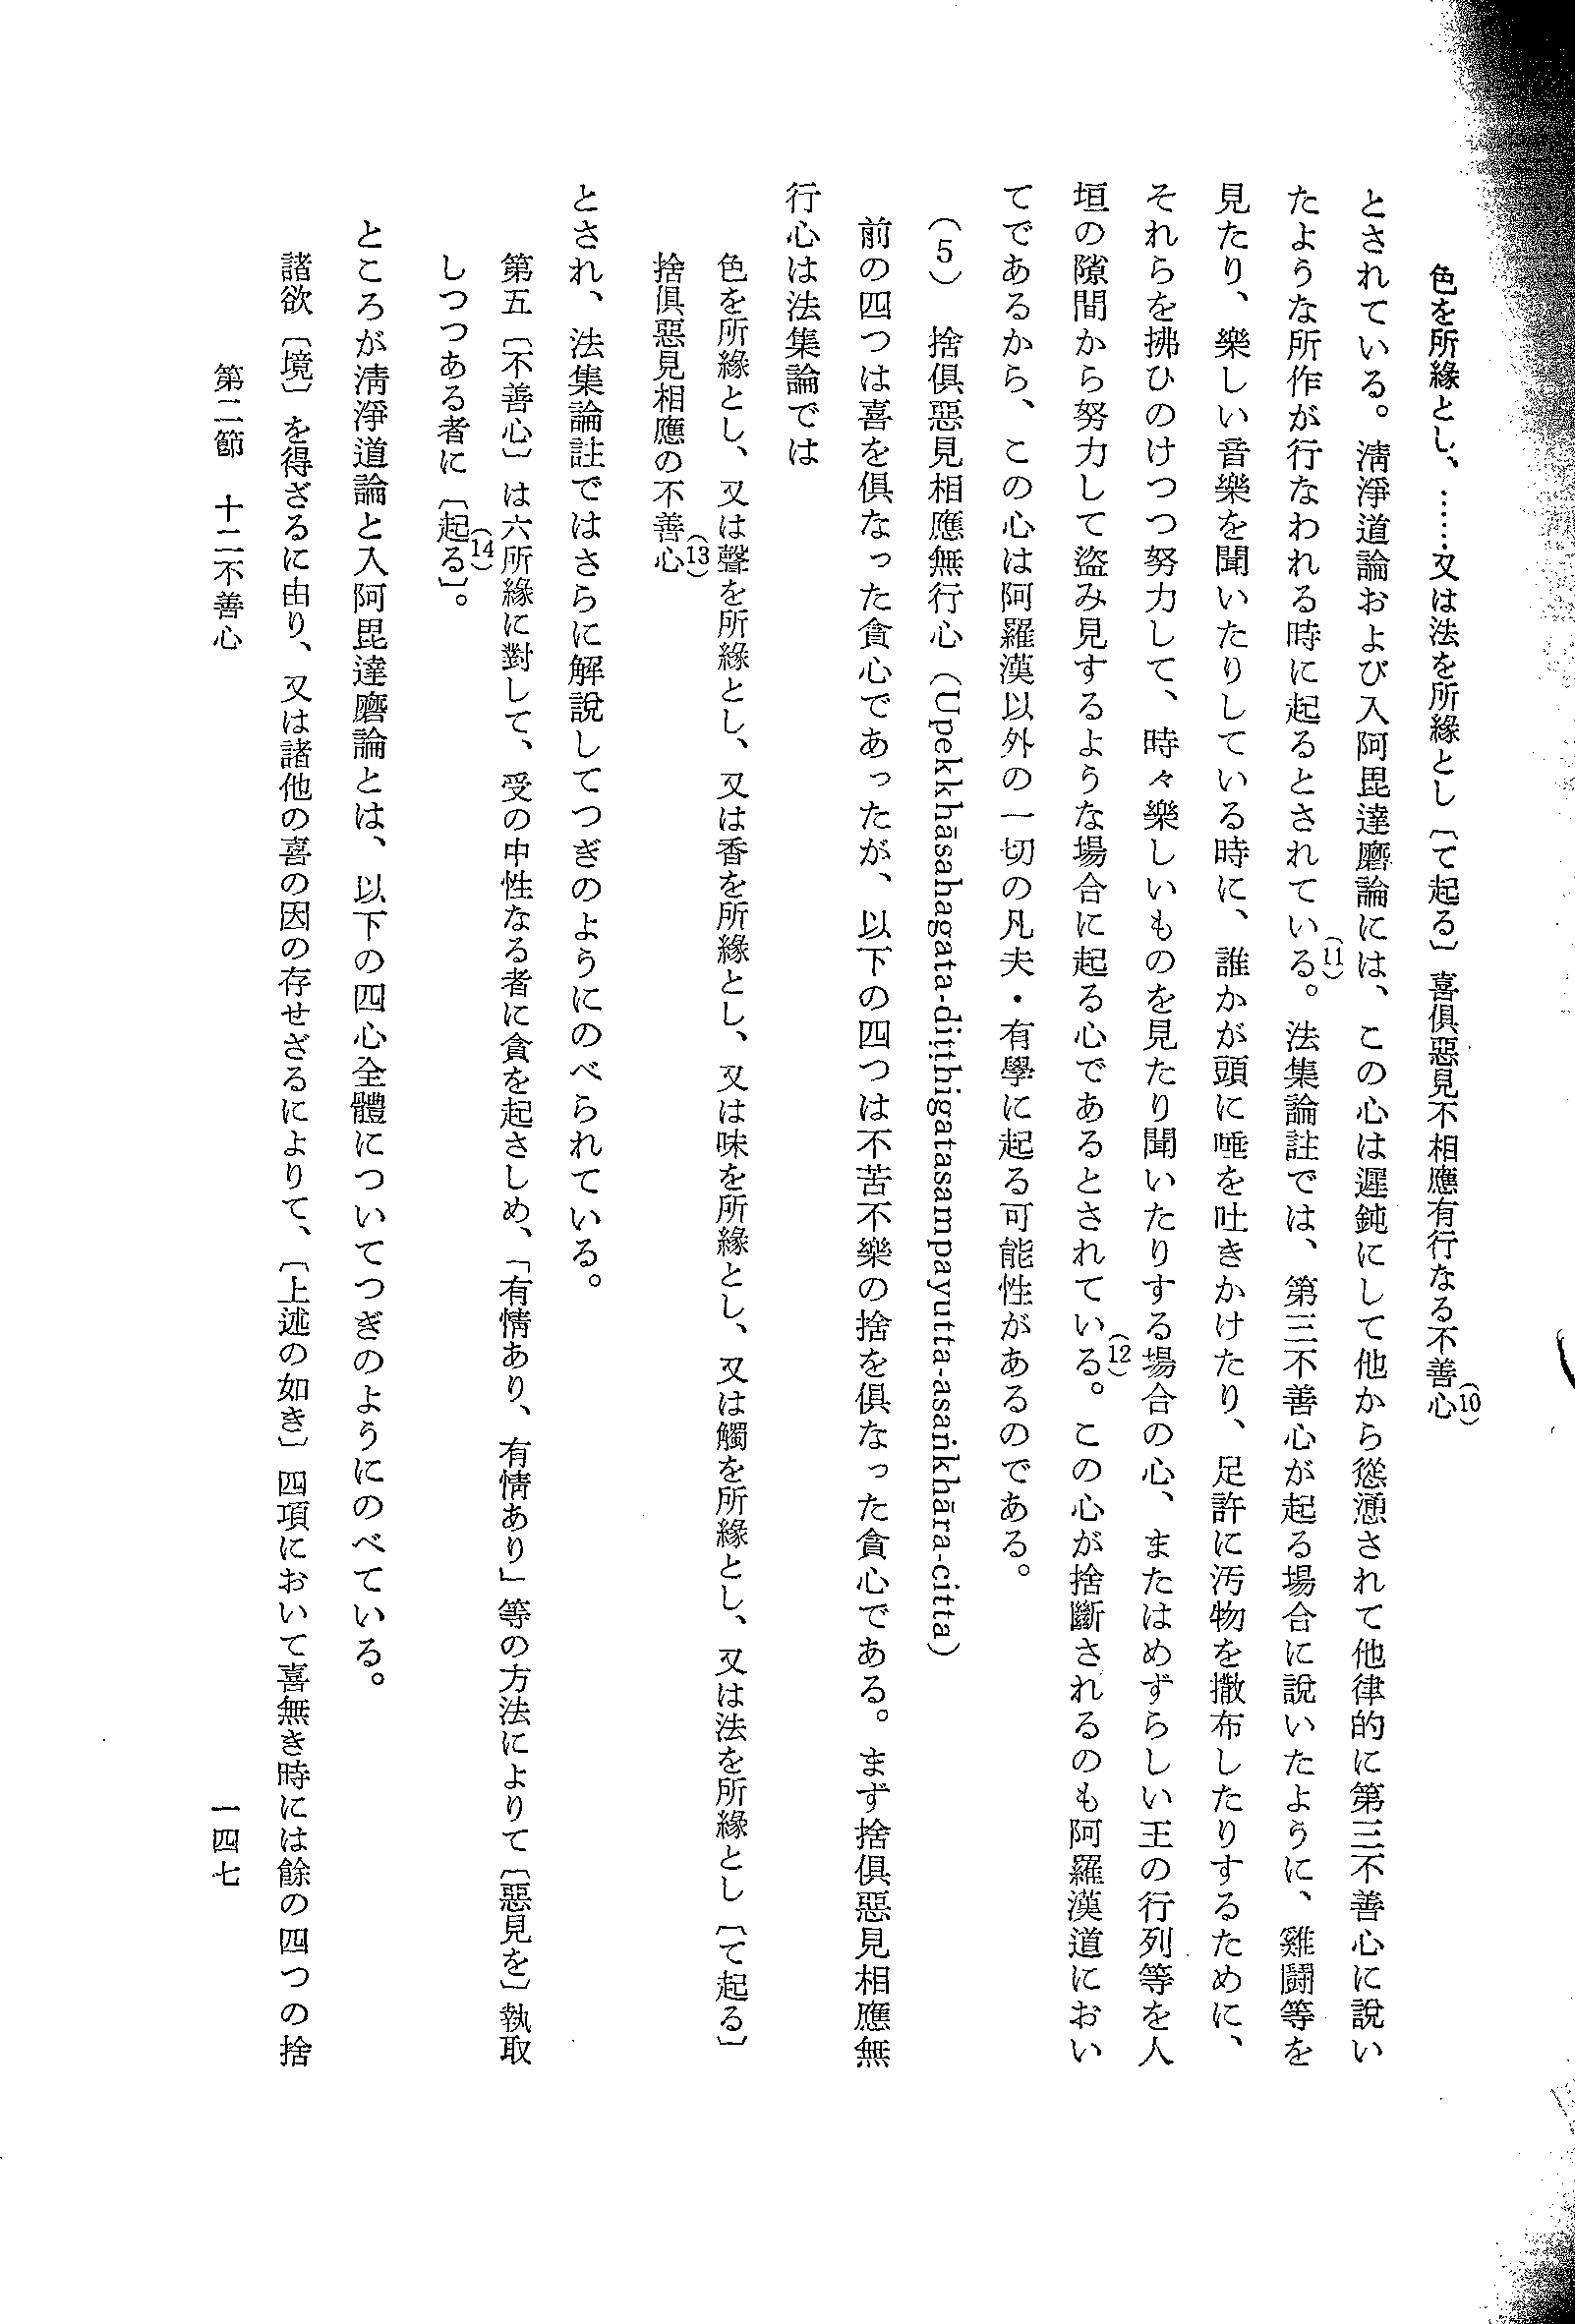 色を所緣とし、……又は法を所緣とし〔て起る〕喜俱惡見不相應有行なる不善心(10)
とされている。淸淨道論および入阿毘達磨論には、この心は遲鈍にして他から慫慂されて他律的に第三不善心に說い
たような所作が行なわれる時に起るとされている(11)。法集論註では、第三不善心が起る場合に說いたように、雞鬪等を
見たり、樂しい音樂を聞いたりしている時に、誰かが頭に唾を吐きかけたり、足許に汚物を撒布したりするために、
それらを拂ひのけつつ努力して、時々樂しいものを見たり聞いたりする場合の心、またはめずらしい王の行列等を人
垣の隙間から努力して盜み見するような場合に起る心であるとされている(12)。この心が捨斷されるのも阿羅漢道におい
てであるから、この心は阿羅漢以外の一切の凡夫・有學に起る可能性があるのである。
(5) 捨俱惡見相應無行心（Upekkhāsahagata-diṭṭhigatasampayutta-asaṅkhāra-citta）
前の四つは喜を俱なった貪心であったが、以下の四つは不苦不樂の捨を俱なった貪心である。まず捨俱惡見相應無
行心は法集論では
色を所緣とし、又は聲を所緣とし、又は香を所緣とし、又は味を所緣とし、又は觸を所緣とし、又は法を所緣とし〔て起る〕
捨俱惡見相應の不善心(13)
とされ、法集論註ではさらに解說してつぎのようにのべられている。
第五〔不善心〕は六所緣に對して、受の中性なる者に貪を起さしめ、「有情あり、有情あり」等の方法によりて〔惡見を〕執取
しつつある者に〔起る〕(14)。
ところが淸淨道論と入阿毘達磨論とは、以下の四心全體についてつぎのようにのべている。
諸欲〔境〕を得ざるに由り、又は諸他の喜の因の存せざるによりて、〔上述の如き〕四項において喜無き時には餘の四つの捨
第二節 十二不善心
一四七